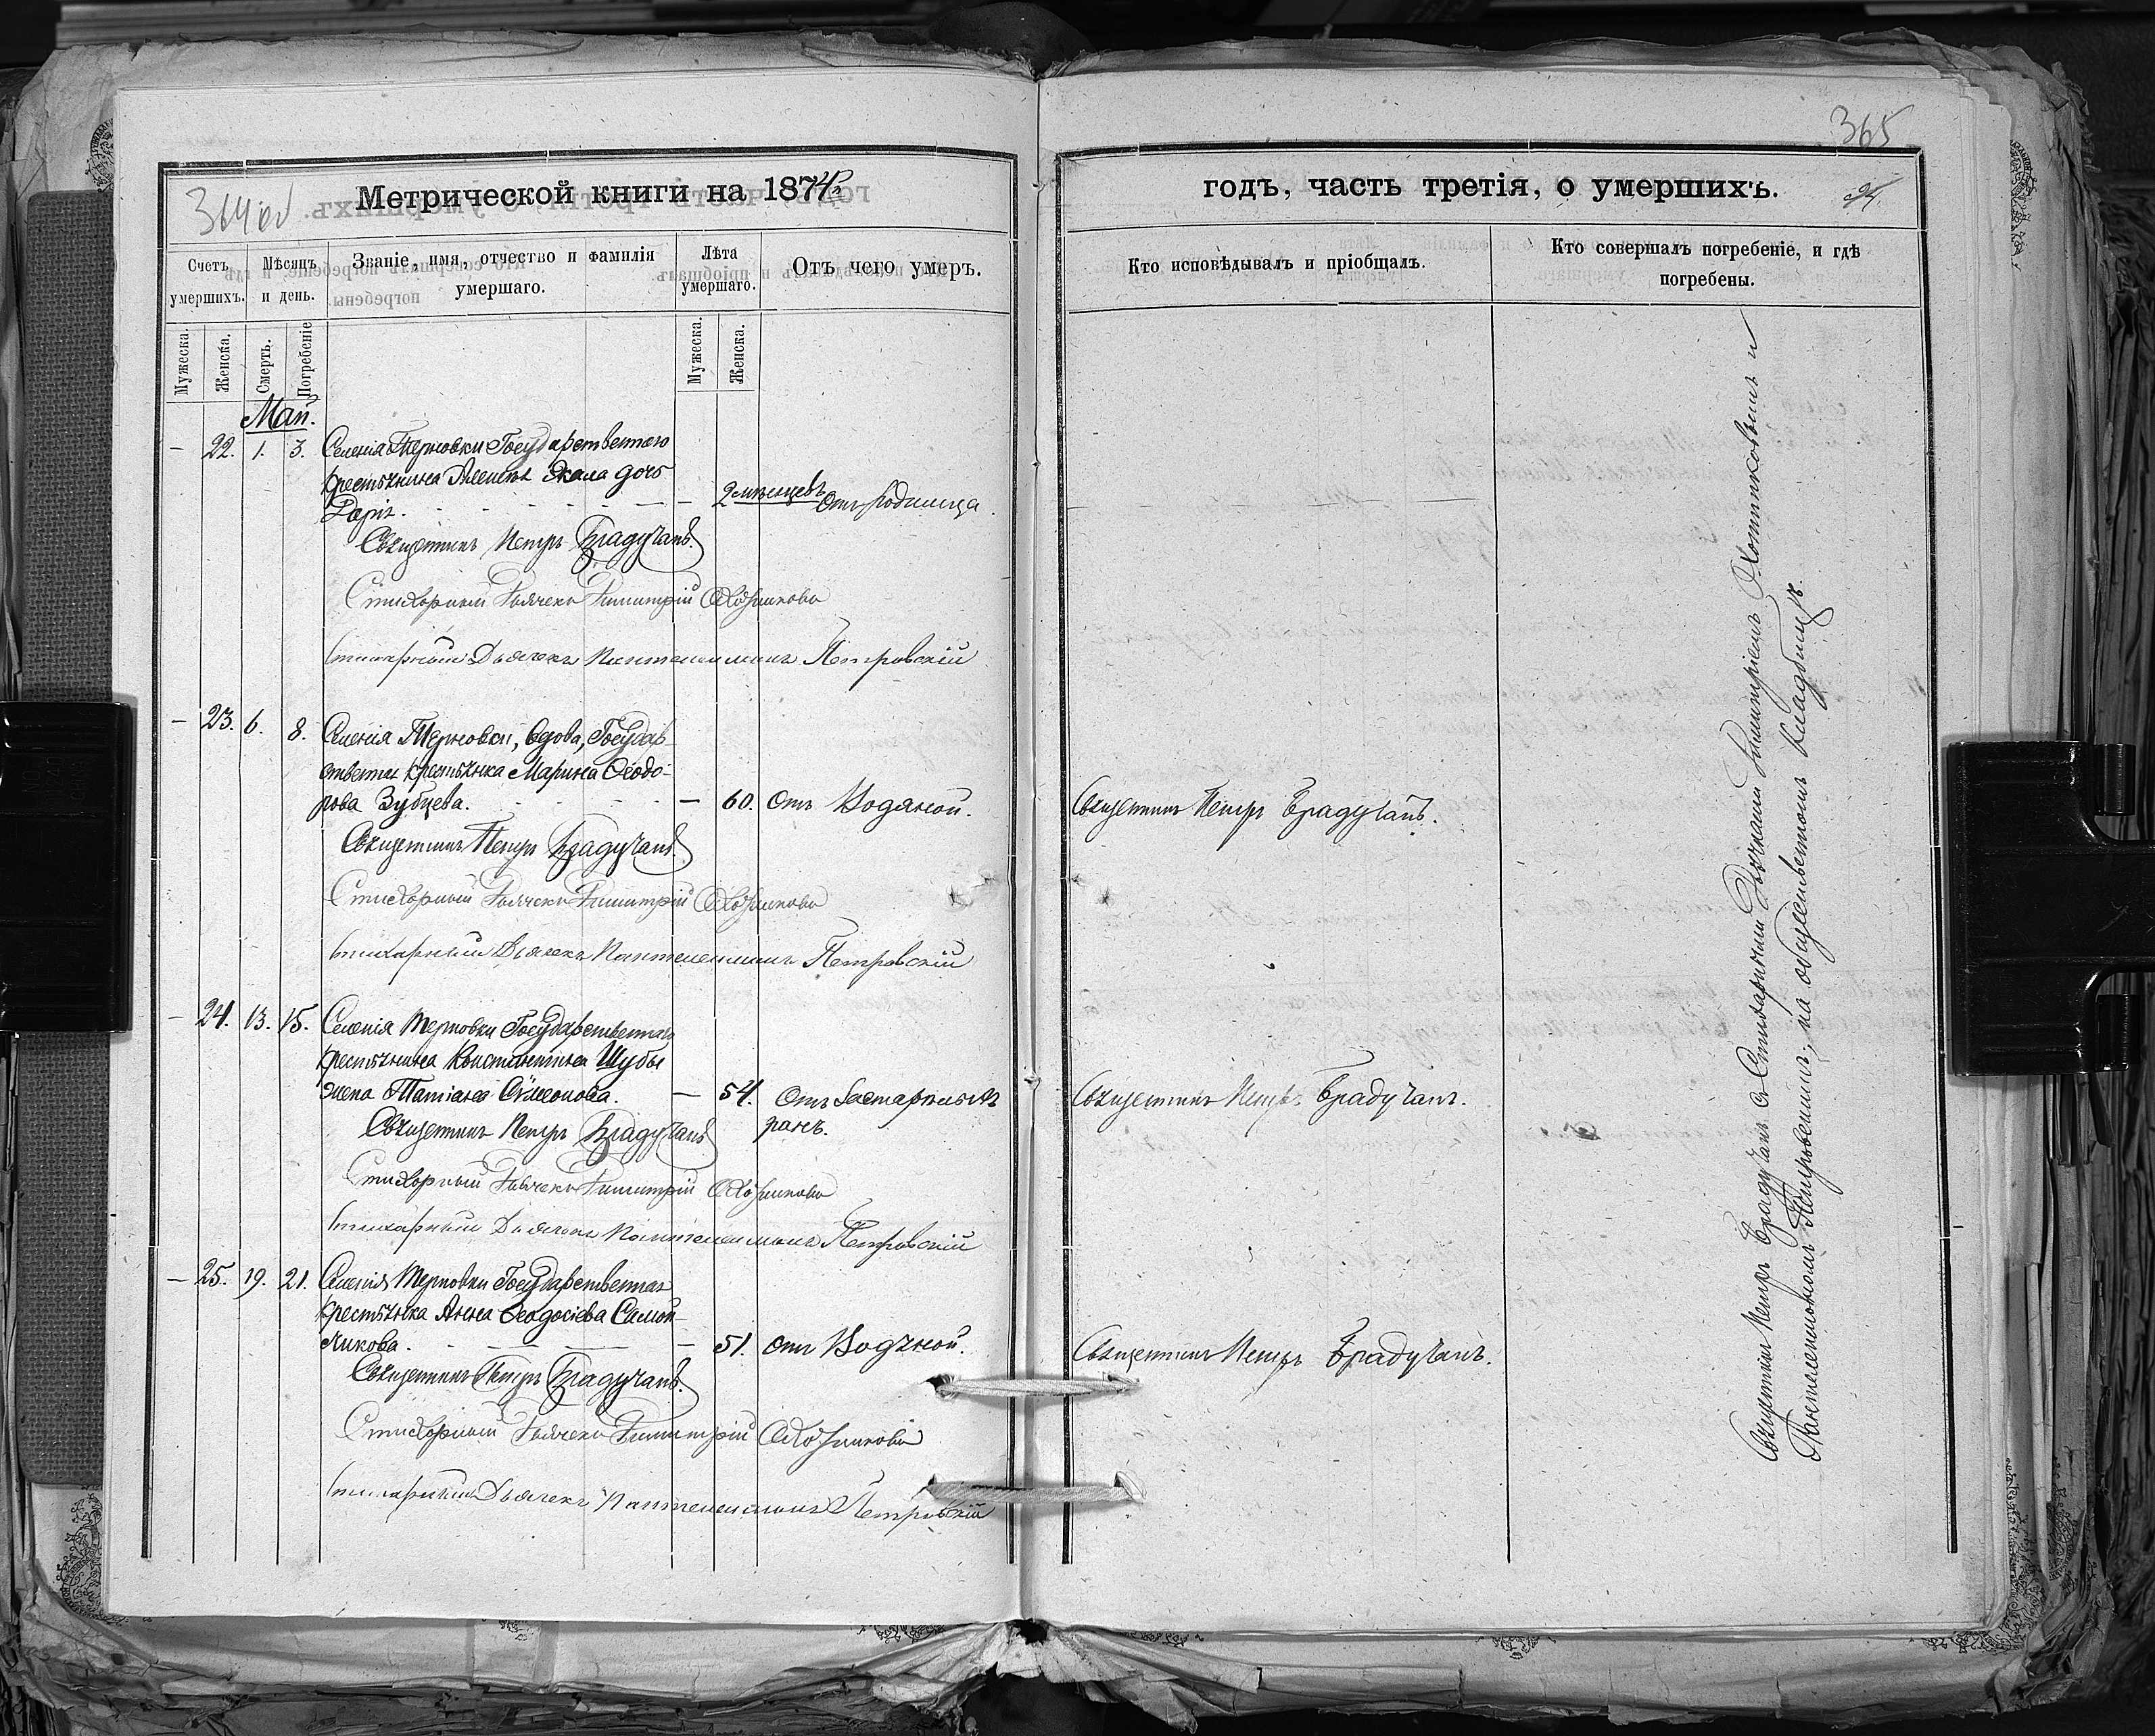 364об
Метрической книги на 1874
Счетъ умершихъ.
Мѣсяцъ и день.
Званіе, имя, отчество и фамилія умершаго.
Лѣта умершаго.
Отъ чего умеръ.
Мужеска.
Женска.
Смерть.
Погребеніе
Мужеска.
Женска.
Май.
— 22. 1. 3. Селенія Терновки Государственнаго
крестьянина Алексѣя дочь
— 2 мѣсяцевъ Отъ родимца.
Священникъ Петръ Брадучанъ.
Стихарный Дьячекъ Димитрій
Стихарный Дьячекъ Пантелеимонъ Петровскій
— 23. 6. 8. Селенія Терновки, вдова, Государ-
ственная крестьянка Марина Ѳеодо-
рова Зубцева. — 60. Отъ Водяной.
Священникъ Петръ Брадучанъ.
Стихарный Дьячекъ Димитрій
Стихарный Дьячекъ Пантелеимонъ Петровскій
— 24. 13. 15. Селенія Терновки Государственнаго
крестьянина Константина Шубы
жена Татіана Сѵмеонова. — 54. Отъ Застарѣлыхъ
ранъ.
Священникъ Петръ Брадучанъ
Стихарный Дьячекъ Димитрій
Стихарный Дьячекъ Пантелеимонъ Петровскій
— 25. 19. 21. Селенія Терновки Государственная
крестьянка Анна Ѳеодосіева Самой-
ликова. — 51. Отъ Водяной.
Священникъ Петръ Брадучанъ.
Стихарный Дьячекъ Димитрій
Стихарный Дьячекъ Пантелеимонъ Петровскій
365
годъ, часть третія, о умершихъ.
Кто исповѣдывалъ и пріобщалъ.
Кто совершалъ погребеніе, и гдѣ погребены.
Священникъ Петръ Брадучанъ.
Священникъ Петръ Брадучанъ.
Священникъ Петръ Брадучанъ.
Священникъ Петръ Брадучанъ съ Стихарными Дьячками Димитріемъ и
Пантелеимономъ Петровскимъ, на общественномъ кладбищѣ.